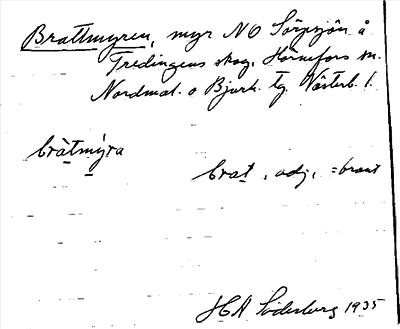 Brattmyren, myr NO Sörpsjön å
Tredingens skog, Hörnefors sn.
Nordmal. o Bjurh. tg. Västerb. l.
bràtmýra
brat, adj, = brant
H A Söderberg 1935